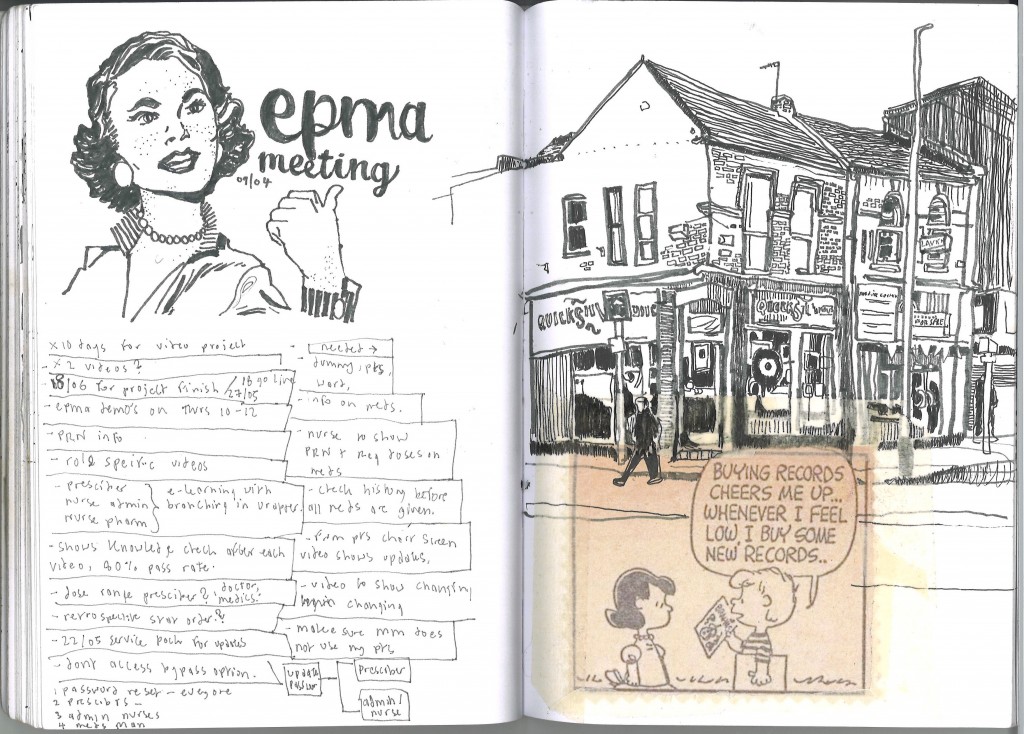 epma
meeting
09/04
x10 days for video project
x2 videos?
18/06 for project finish / 18 go live
27/05
- epma demo's on Thurs 10-12
- PRN info
- role specific videos
- prescriber
nurse admin
nurse pharm
e-learning with
branching in wrapper.
- shows knowledge check after each
video, 80% pass rate.
- dose range prescriber? doctor,
medics.
- retrospective stat order?
- 22/05 service pack for updates
- dont access bypass option.
1 password reset - everyone
2 prescribers -
3 admin nurses
4 meds man
- needed →
dummy, pts,
ward,
- info on meds.
- nurse to show
PRN + Reg doses on
meds
- check history before
all meds are given.
- from pts chart screen
video shows updates,
- video to show changing
changing
- make sure mm does
not use my pts
update
prescriber
admin/
nurse
QUICKSILV
QUICKSIL
BUYING RECORDS
CHEERS ME UP...
WHENEVER I FEEL
LOW, I BUY SOME
NEW RECORDS..